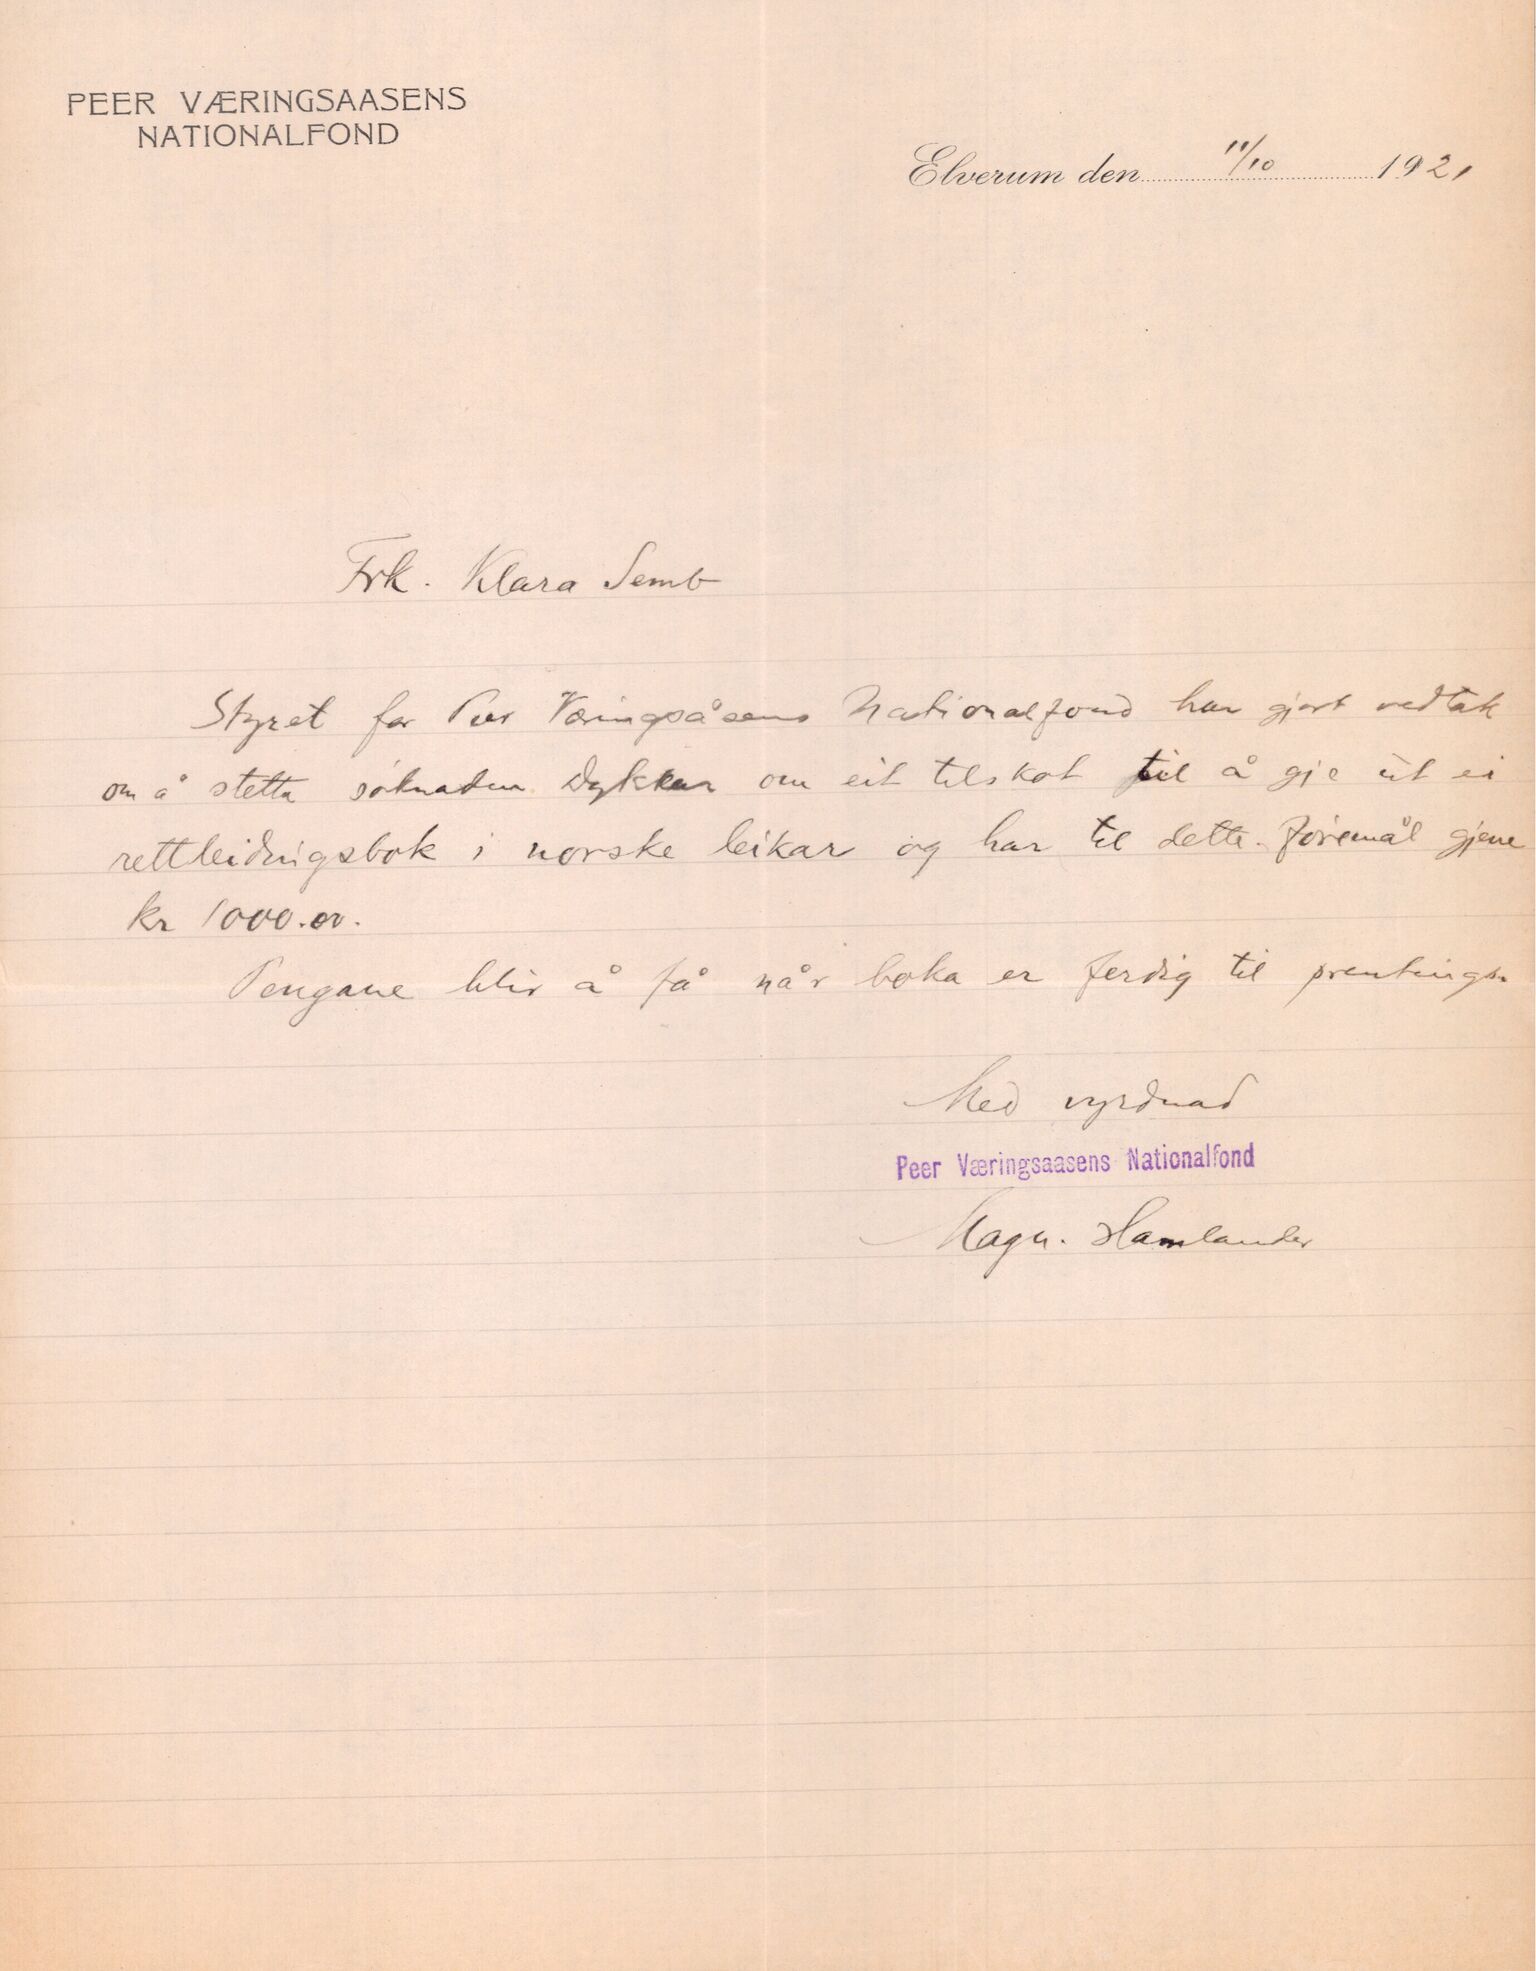 PEER VÆRINGSAASENS
NATIONALFOND
Elverum den 11/10 1921
Frk. Klara Semb
Styret for Peer Væringsåsens Nationalfond har gjort vedtak
om å stetta søknaden Dykkar om eit tilskot til å gje út ei
rettleidningsbok i norske leikar og har til dette föremål gjeve
kr 1000.00.
Pengane blir å få når boka er ferdig til prentings.
Med vyrdnad
Peer Væringsaasens Nationalfond
Magn. Hamlander